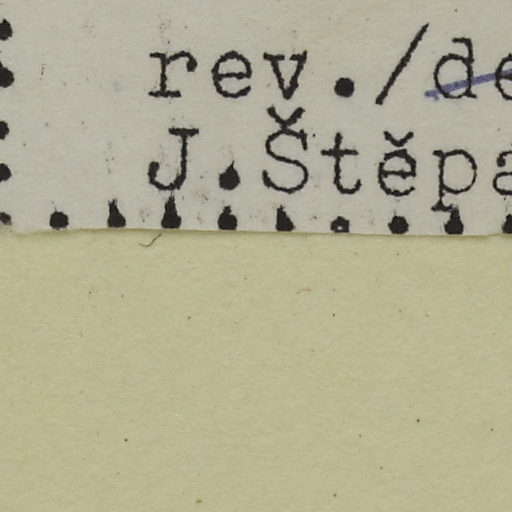 rev./de
J.Štěpa